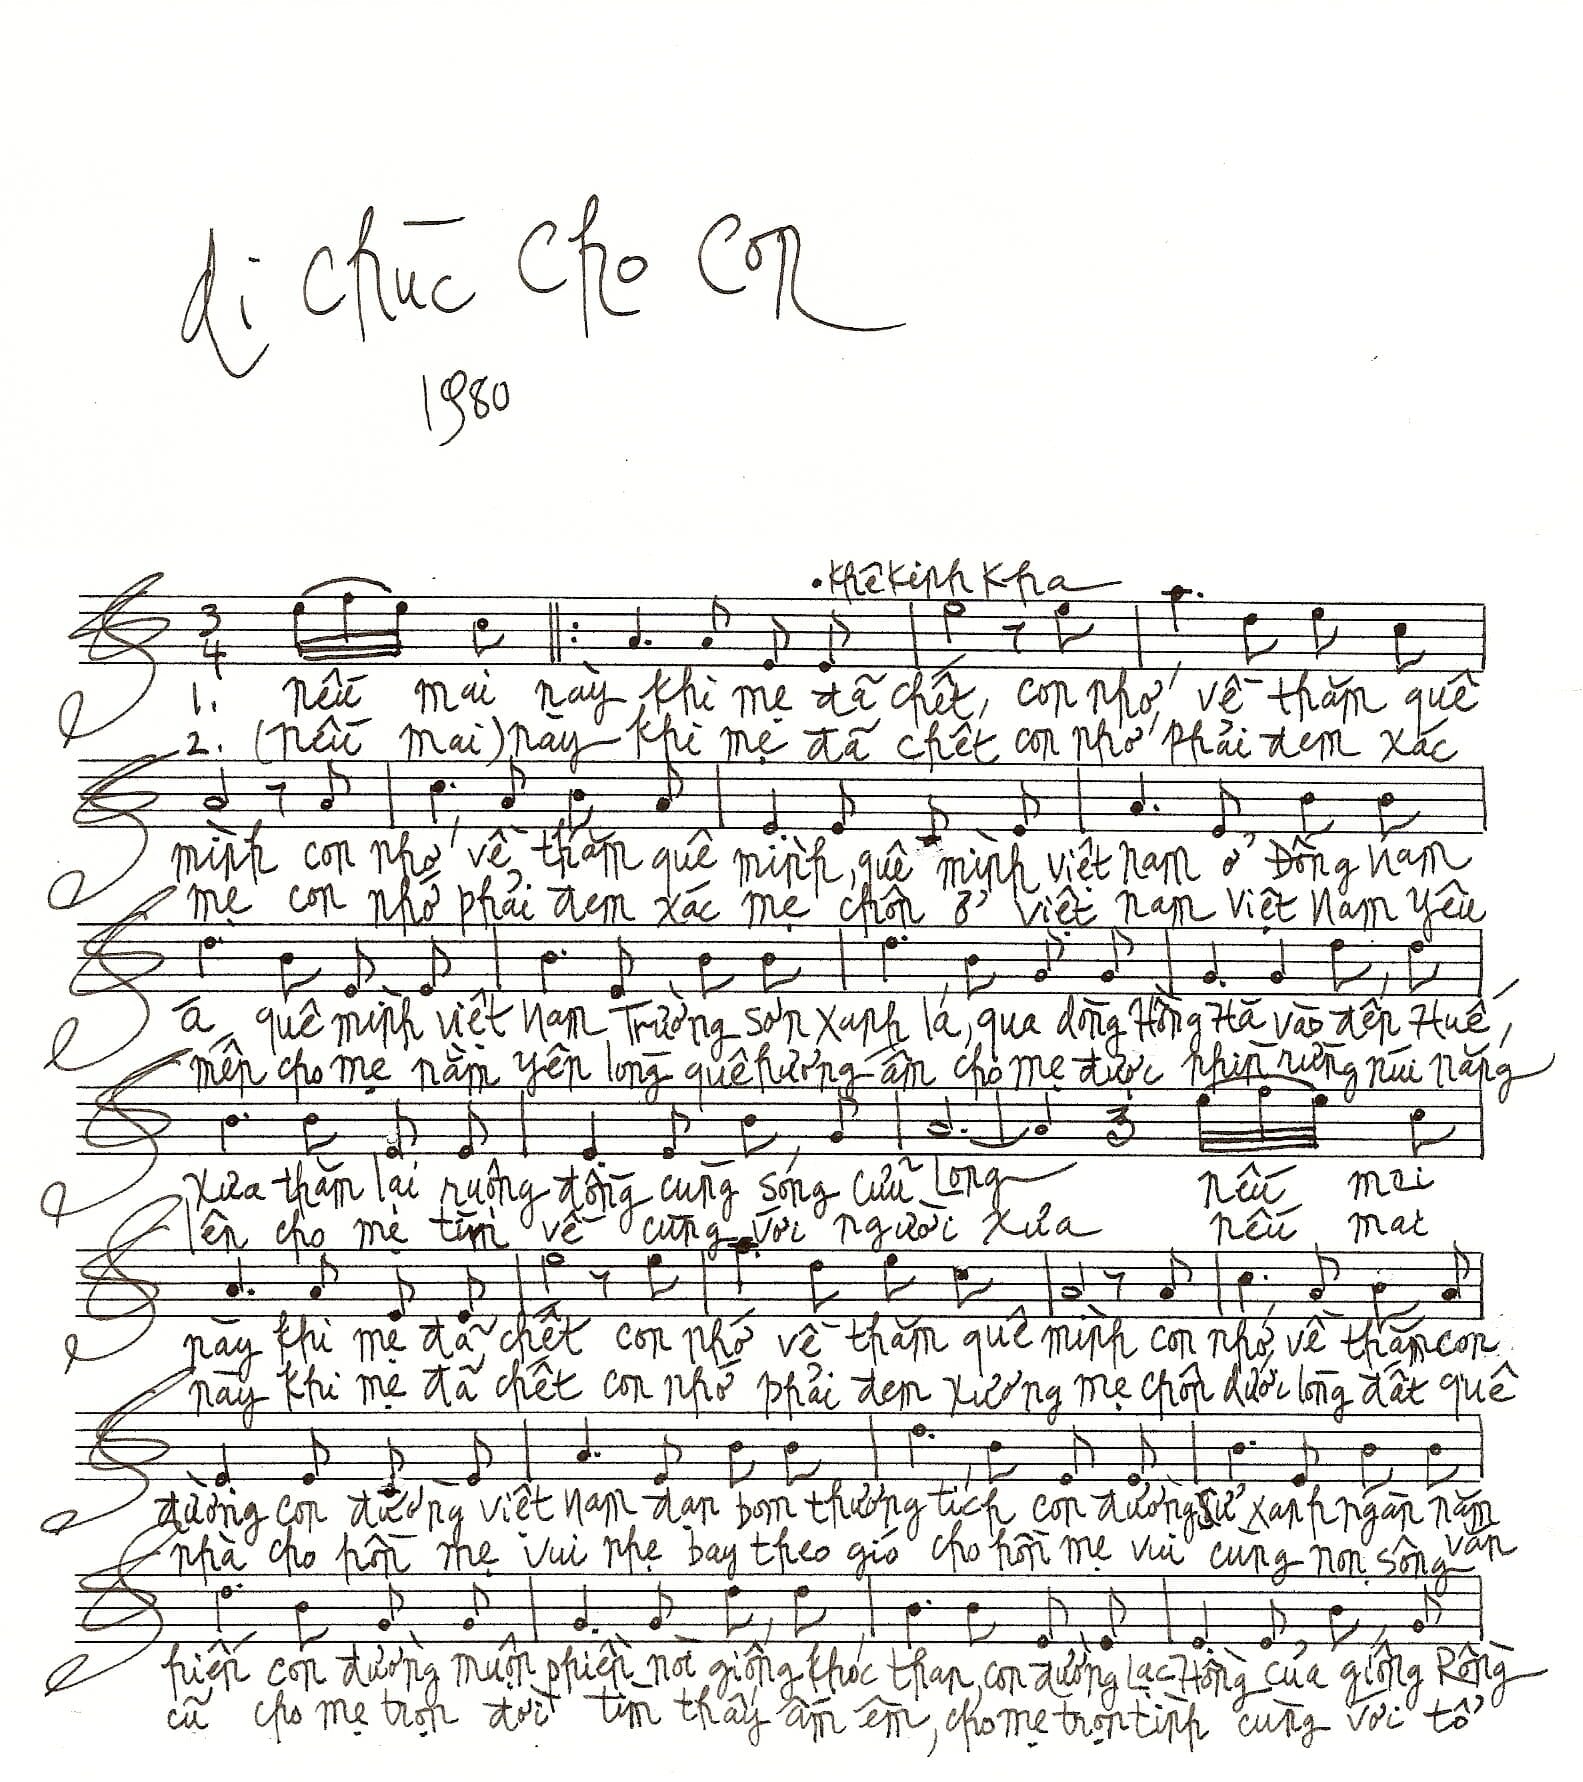 di chúc cho con
1980
. Khê Kinh Kha
3
4
1. nếu mai này khi mẹ đã chết, con nhớ về thăm quê
2. (nếu mai) này khi mẹ đã chết con nhớ phải đem xác
mình con nhớ về thăm quê mình, quê mình việt nam ở Đông Nam
mẹ con nhớ phải đem xác mẹ chôn ở việt nam việt Nam yêu
á quê mình việt Nam Trường sơn xanh lá, qua dòng Hồng Hà vào đến Huế,
mến cho mẹ nằm yên lòng quê hương ấm cho mẹ được nhìn rừng núi nắng
3
xưa thăm lại ruộng đồng cùng sóng cửu Long nếu mai
lên cho mẹ tìm về cùng với người xưa nếu mai
này khi mẹ đã chết con nhớ về thăm quê mình con nhớ về thăm con
này khi mẹ đã chết con nhớ phải đem xương mẹ chôn dưới lòng đất quê
đường con đường việt Nam đạn bom thương tích con đường sử xanh ngàn năm
nhà cho hồn mẹ vui nhẹ bay theo gió cho hồn mẹ vui cùng non sông văn
hiến con đường muộn phiền nòi giống khóc than, con đường Lạc Hồng của giống Rồng
cũ cho mẹ trọn đời tìm thấy ấm êm, cho mẹ trọn tình cùng với tổ